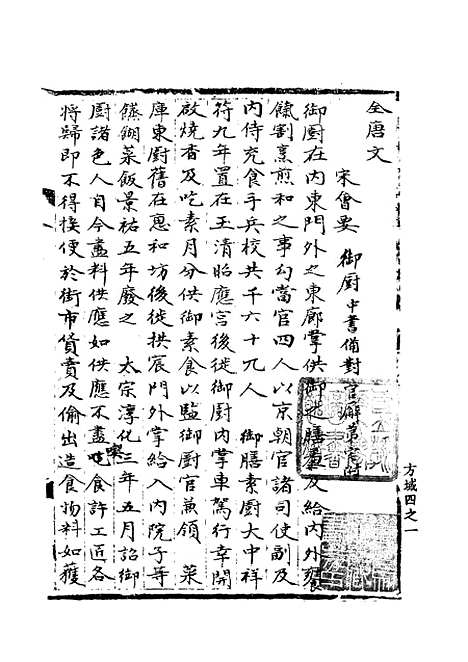 全唐文
宋會要 御厨 中書備對
御厨在內東門外之東廊掌供御之膳羞及給內外饔
餼割烹煎和之事勾當官四人以京朝官諸司使副及
內侍充食手兵校共千六十九人 御膳素厨大中祥
符九年置在玉清昭應宮後徙御厨內掌車駕行幸開
啟燒香及吃素月分供御素食以監御厨官兼領 菜
庫東厨舊在惠和坊後徙拱宸門外掌給入內院子等
饊餬菜飯景祐五年廢之 太宗淳化三年五月詔御
厨諸色人自今盡料供應如供應不盡喫食許工匠各
將歸即不得挨便於街市貨賣及偷出造食物料如獲
方域四之一